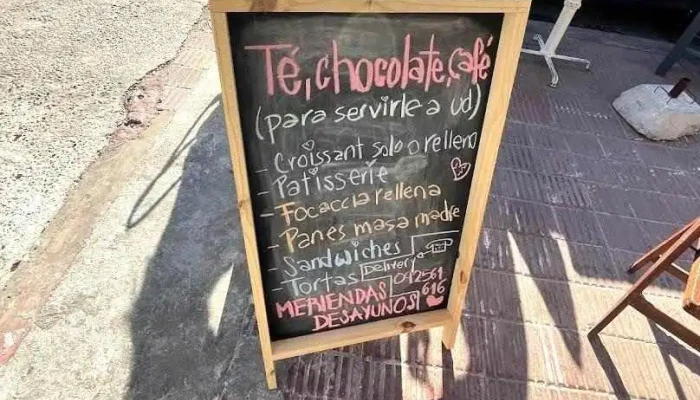 Té, chocolate, café
(para servirle a Ud)
- Croissant solo o relleno
- Patisserie
- Focaccia rellena
- Panes masa madre
- Sandwiches
- Tortas Delivery
092561
616
MERIENDAS
DESAYUNOS